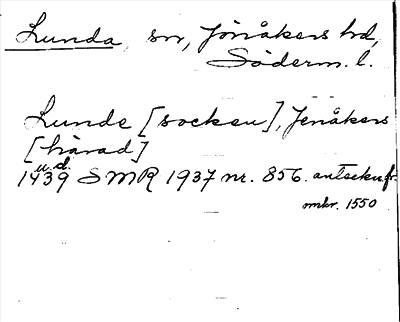 Lunda, sn, Jönåkers hd,
Söderm. l.
Lunde [socken], Jenåkers
[härad]
u. d.
1439 SMR 1937 nr. 856. anteckn. fr.
omkr. 1550